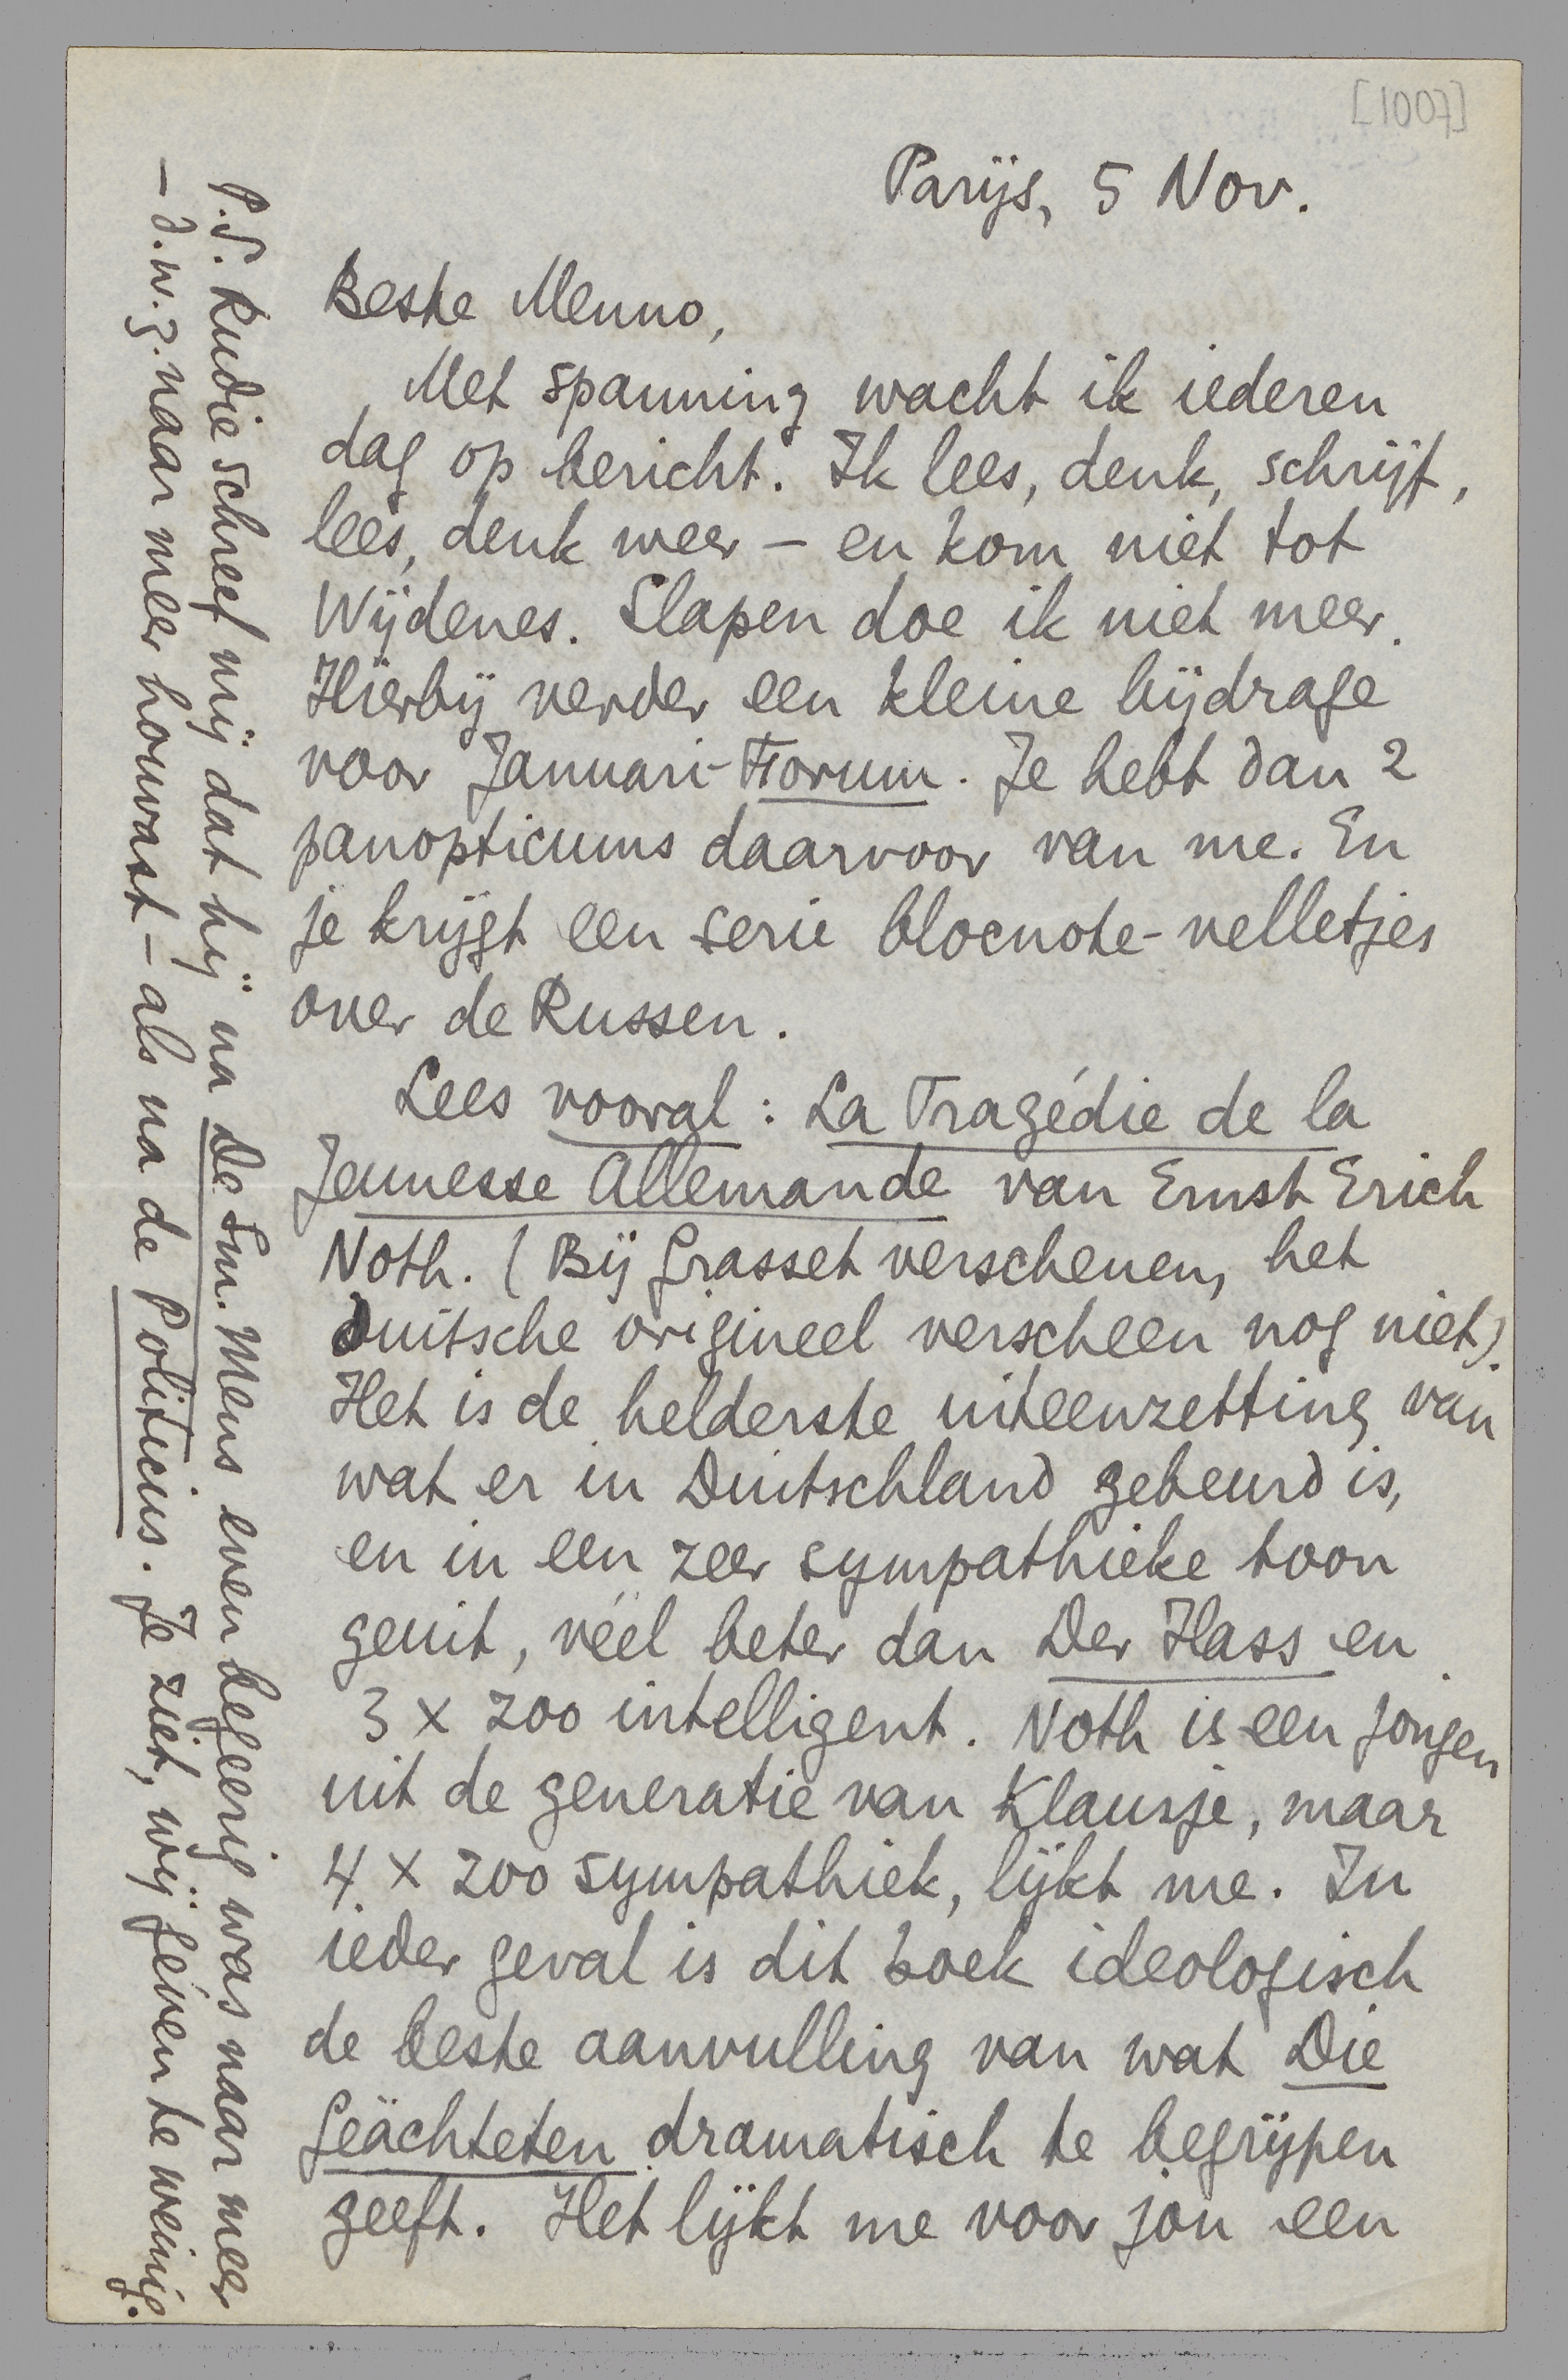 [1007]
Parijs, 5 Nov.
Beste Menno,
Met spanning wacht ik iederen
dag op bericht. Ik lees, denk, schrijf,
lees, denk weer – en kom niet tot
Wijdenes. Slapen doe ik niet meer.
Hierbij verder een kleine bijdrage
voor Januari-Forum. Je hebt dan 2
panopticums daarvoor van me. En
je krijgt een serie blocnote-velletjes
over de Russen.
Lees vooral: La Tragédie de la
Jeunesse Allemande van Ernst Erich
Noth. (Bij Grasset verschenen, het
Duitsche origineel verscheen nog niet).
Het is de helderste uiteenzetting van
wat er in Duitschland gebeurd is,
en in een zeer sympathieke toon
geuit, véél beter dan Der Hass en
3 x zoo intelligent. Noth is een jongen
uit de generatie van Klausje, maar
4 x zoo sympathiek, lijkt me. In
ieder geval is dit boek ideologisch
de beste aanvulling van wat Die
Geächteten dramatisch te begrijpen
geeft. Het lijkt me voor jou een
P.S. Rudie schreef mij dat hij na De Sm. Mens even begeerig was naar meer
– d.w.z. naar meer houvast – als na de Politicus. Je ziet, wij geven te weinig.